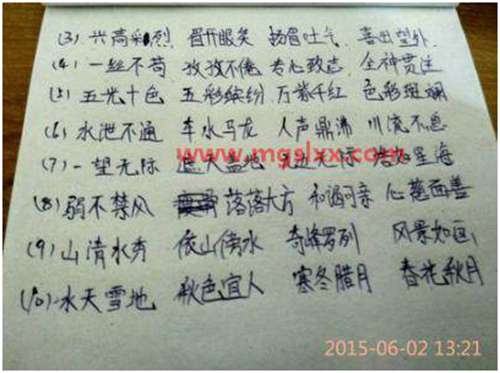 (3) 兴高彩烈 眉开眼笑 扬眉吐气 喜出望外
(4) 一丝不苟 孜孜不倦 专心致志 全神贯注
(5) 五光十色 五彩缤纷 万紫千红 色彩斑斓
(6) 水泄不通 车水马龙 人声鼎沸 川流不息
www.mgslxx.com
(7) 一望无际
(8) 弱不禁风 落落大方 和谒可亲 心慈面善
(9) 山清水秀 依山傍水 奇峰罗列 风景如画
(10) 水天雪地 秋色宜人 寒冬腊月 春花秋月
2015-06-02 13:21